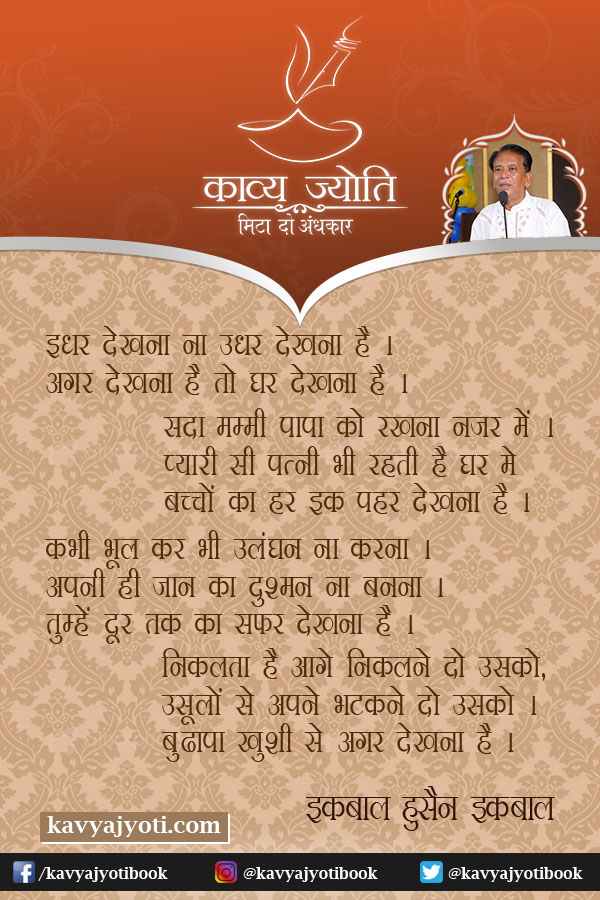 काव्य ज्योति
मिटा दो अंधकार
इधर देखना ना उधर देखना है ।
अगर देखना है तो घर देखना है ।
सदा मम्मी पापा को रखना नजर में ।
प्यारी सी पत्नी भी रहती है घर मे
बच्चों का हर इक पहर देखना है ।
कभी भूल कर भी उलंघन ना करना ।
अपनी ही जान का दुश्मन ना बनना ।
तुम्हें दूर तक का सफर देखना है ।
निकलता है आगे निकलने दो उसको,
उसूलों से अपने भटकने दो उसको ।
बुढापा खुशी से अगर देखना है ।
इकबाल हुसैन इकबाल
kavyajyoti.com
/kavyajyotibook @kavyajyotibook @kavyajyotibook